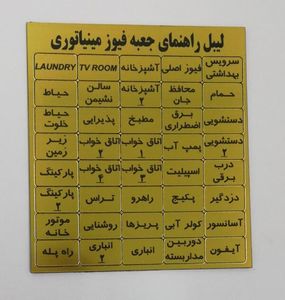 لیبل راهنمای جعبه فیوز مینیاتوری
سرویس بهداشتی
فیوز اصلی
آشپزخانه
TV ROOM
LAUNDRY
حمام
محافظ جان
آشپزخانه ۲
سالن نشیمن
حیاط
دستشویی
برق اضطراری
مطبخ
پذیرایی
حیاط خلوت
دستشویی ۲
پمپ آب
اتاق خواب ۱
اتاق خواب ۲
زیر زمین
درب برقی
اسپیلیت
اتاق خواب ۳
اتاق خواب ۴
پارکینگ
دزدگیر
پکیج
راهرو
تراس
پارکینگ ۲
آسانسور
کولر آبی
پریزها
روشنایی
موتور خانه
آیفون
دوربین مداربسته
انباری
انباری ۲
راه پله